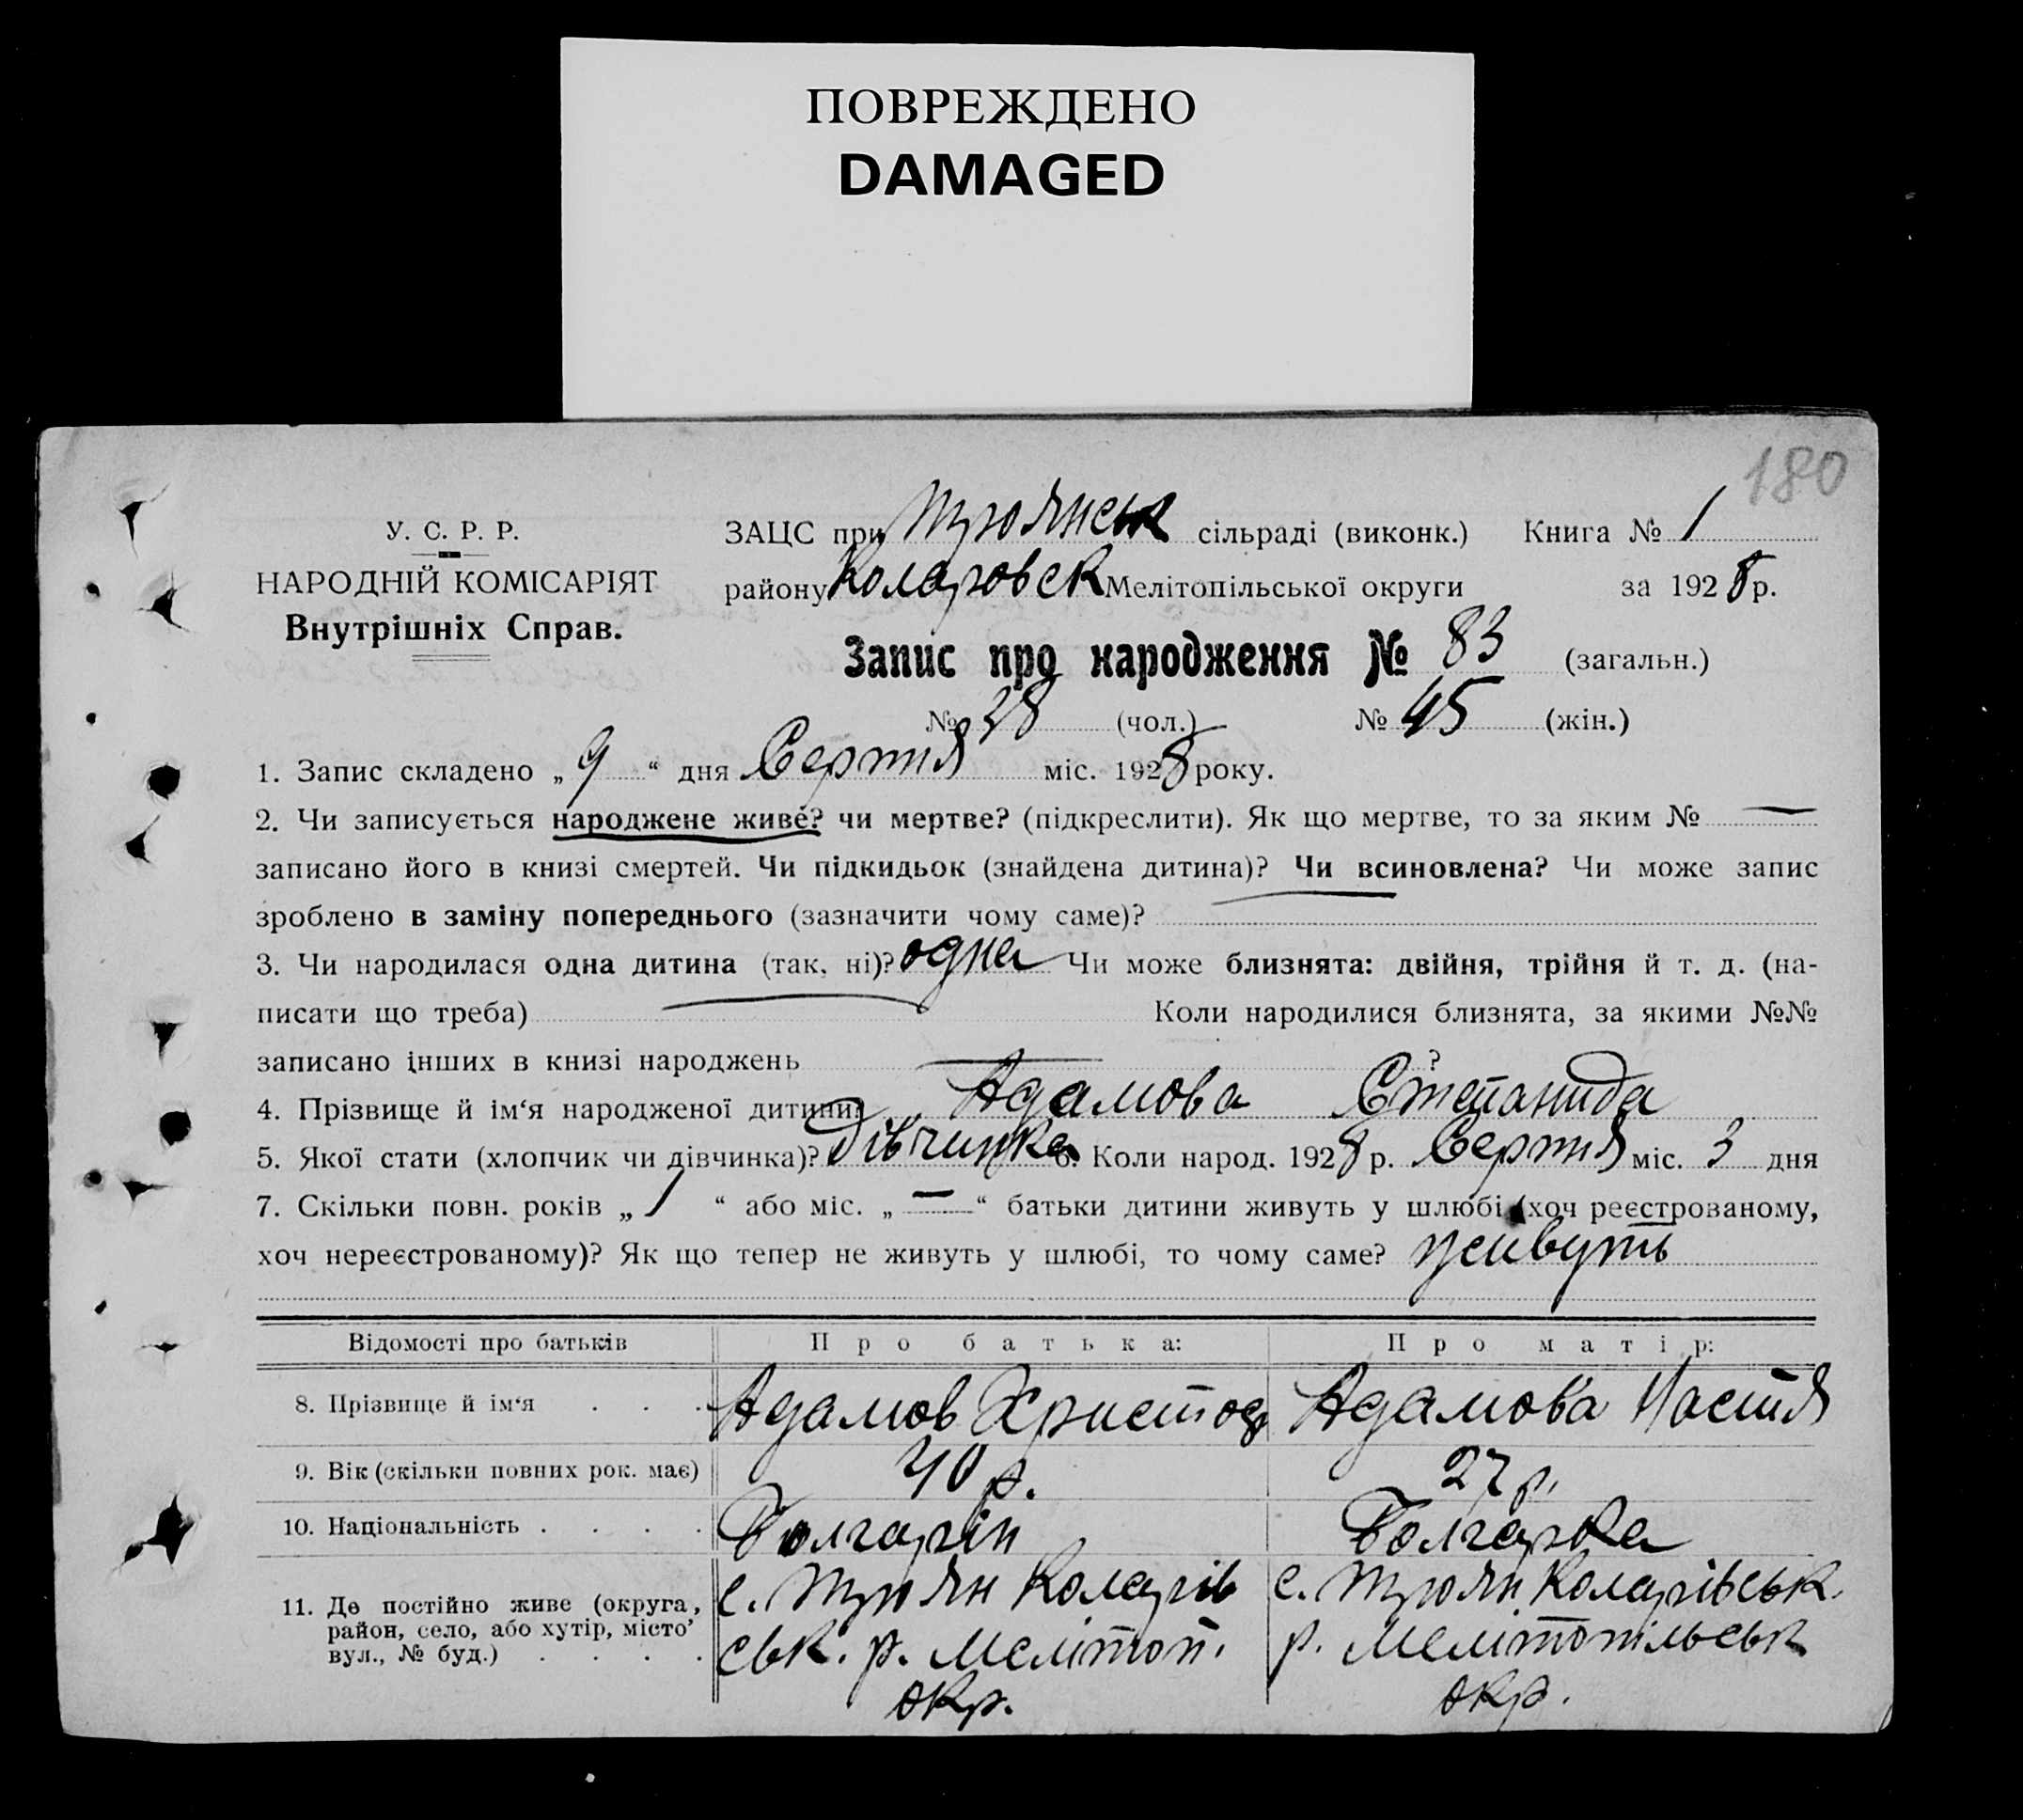 ПОВРЕЖДЕНО
DAMAGED
180
У. С. Р. Р.
НАРОДНІЙ КОМІСАРІЯТ
Внутрішніх Справ.
ЗАЦС при Троянськ сільраді (виконк.) Книга № 1
району Коларовськ Мелітопільської округи за 1928 р.
Запис про народження № 83 (загальн.)
№ 38 (чол.) № 45 (жін.)
1. Запис складено „9“ дня Серпня міс. 1928 року.
2. Чи записується народжене живе? чи мертве? (підкреслити). Як що мертве, то за яким № —
записано його в книзі смертей. Чи підкидьок (знайдена дитина)? Чи всиновлена? Чи може запис
зроблено в заміну попереднього (зазначити чому саме)?
3. Чи народилася одна дитина (так, ні)? одна Чи може близнята: двійня, трійня й т. д. (на-
писати що треба) Коли народилися близнята, за якими №№
записано інших в книзі народжень — ?
4. Прізвище й ім‘я народженої дитини: Адамова Степанида
5. Якої стати (хлопчик чи дівчинка)? дівчинка 6. Коли народ. 1928 р. Серпня міс. 3 дня
7. Скільки повн. років „1“ або міс. „—“ батьки дитини живуть у шлюбі (хоч реєстрованому,
хоч нереєстрованому)? Як що тепер не живуть у шлюбі, то чому саме? живуть
Відомості про батьків Про батька: Про матір:
8. Прізвище й ім‘я . . . Адамов Христоф Адамова Настя
9. Вік (скільки повних рок. має) 40 р. 27 р.
10. Національність . . . . Болгарін Болгарка
11. Де постійно живе (округа, район, село, або хутір, місто’ вул., № буд.) . . . .
с. Троян Коларів
ськ. р. Мелітоп.
окр.
с. Троян Коларівськ.
р. Мелітопільськ
окр.